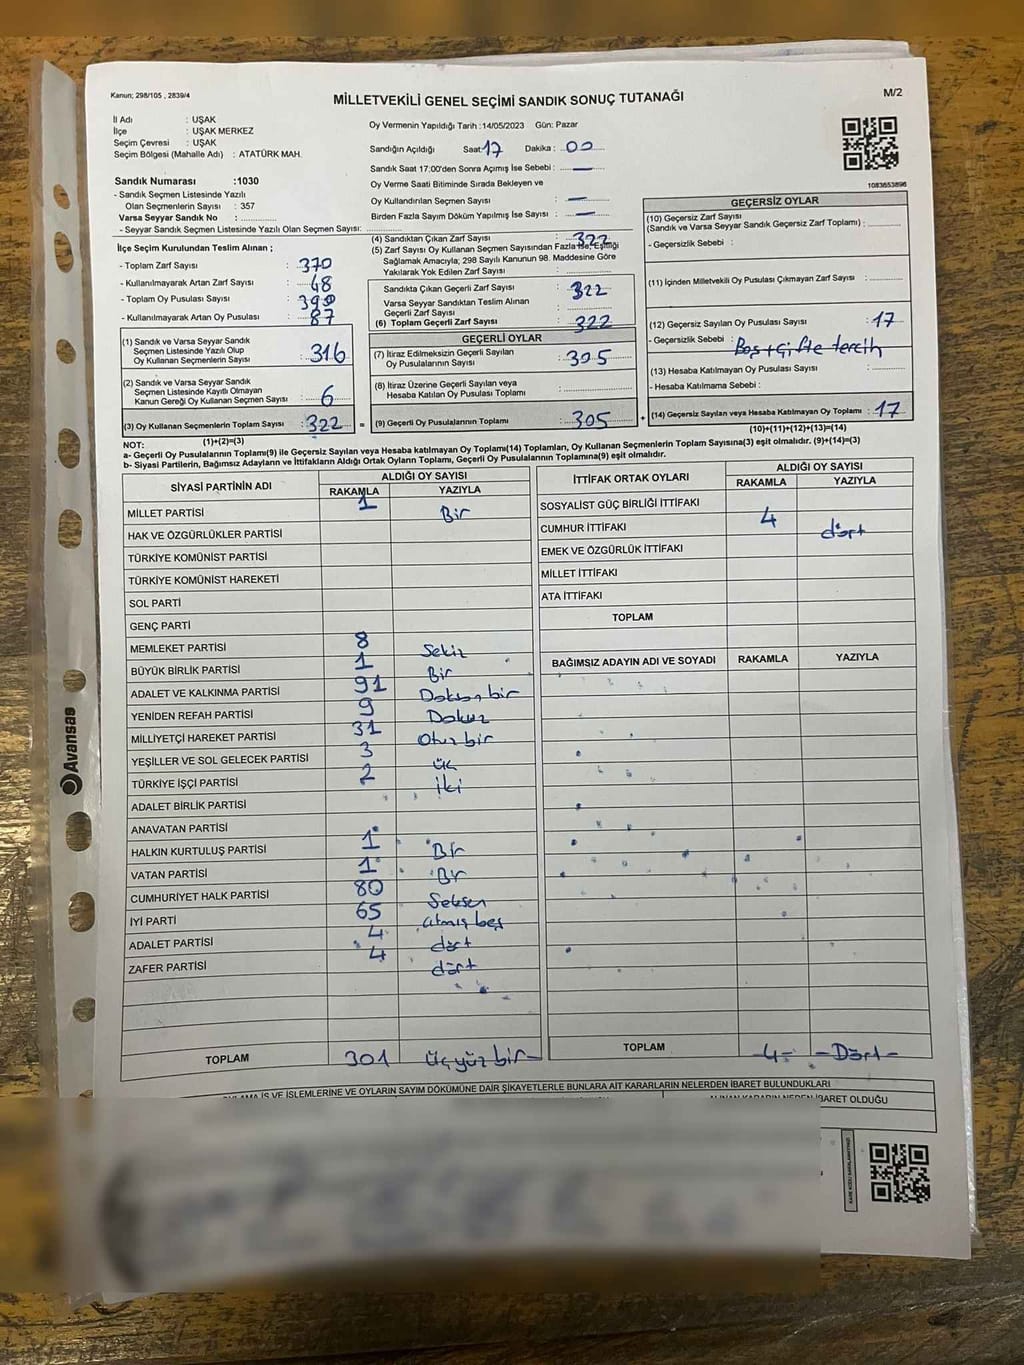 Kanun; 298/105 , 2839/4
MİLLETVEKİLİ GENEL SEÇİMİ SANDIK SONUÇ TUTANAĞI
M/2
İl Adı : UŞAK
İlçe : UŞAK MERKEZ
Seçim Çevresi : UŞAK
Seçim Bölgesi (Mahalle Adı) : ATATÜRK MAH.
Sandık Numarası :1030
- Sandık Seçmen Listesinde Yazılı
Olan Seçmenlerin Sayısı : 357
Varsa Seyyar Sandık No :
- Seyyar Sandık Seçmen Listesinde Yazılı Olan Seçmen Sayısı:
Oy Vermenin Yapıldığı Tarih :14/05/2023 Gün: Pazar
Sandığın Açıldığı Saat: 17 Dakika : 00
Sandık Saat 17:00'den Sonra Açımış İse Sebebi : —
Oy Verme Saati Bitiminde Sırada Bekleyen ve
Oy Kullandırılan Seçmen Sayısı : —
Birden Fazla Sayım Döküm Yapılmış İse Sayısı : —
1083653896
İlçe Seçim Kurulundan Teslim Alınan ;
- Toplam Zarf Sayısı : 370
- Kullanılmayarak Artan Zarf Sayısı : 48
- Toplam Oy Pusulası Sayısı : 390
- Kullanılmayarak Artan Oy Pusulası : 87
(1) Sandık ve Varsa Seyyar Sandık
Seçmen Listesinde Yazılı Olup
Oy Kullanan Seçmenlerin Sayısı : 316
(2) Sandık ve Varsa Seyyar Sandık
Seçmen Listesinde Kayıtlı Olmayan
Kanun Gereği Oy Kullanan Seçmen Sayısı : 6
(3) Oy Kullanan Seçmenlerin Toplam Sayısı : 322
(1)+(2)=(3)
(4) Sandıktan Çıkan Zarf Sayısı : 322
(5) Zarf Sayısı Oy Kullanan Seçmen Sayısından Fazla İse, Eşitliği
Sağlamak Amacıyla; 298 Sayılı Kanunun 98. Maddesine Göre
Yakılarak Yok Edilen Zarf Sayısı :
Sandıkta Çıkan Geçerli Zarf Sayısı : 322
Varsa Seyyar Sandıktan Teslim Alınan
Geçerli Zarf Sayısı :
(6) Toplam Geçerli Zarf Sayısı : 322
GEÇERLİ OYLAR
(7) İtiraz Edilmeksizin Geçerli Sayılan
Oy Pusulalarının Sayısı : 305
(8) İtiraz Üzerine Geçerli Sayılan veya
Hesaba Katılan Oy Pusulası Toplamı :
= (9) Geçerli Oy Pusulalarının Toplamı : 305 +
GEÇERSİZ OYLAR
(10) Geçersiz Zarf Sayısı
(Sandık ve Varsa Seyyar Sandık Geçersiz Zarf Toplamı) :
- Geçersizlik Sebebi :
(11) İçinden Milletvekili Oy Pusulası Çıkmayan Zarf Sayısı :
(12) Geçersiz Sayılan Oy Pusulası Sayısı : 17
- Geçersizlik Sebebi : Boş+Çifte tercih
(13) Hesaba Katılmayan Oy Pusulası Sayısı :
- Hesaba Katılmama Sebebi :
(14) Geçersiz Sayılan veya Hesaba Katılmayan Oy Toplamı : 17
(10)+(11)+(12)+(13)=(14)
NOT:
a- Geçerli Oy Pusulalarının Toplamı(9) ile Geçersiz Sayılan veya Hesaba katılmayan Oy Toplamı(14) Toplamları, Oy Kullanan Seçmenlerin Toplam Sayısına(3) eşit olmalıdır. (9)+(14)=(3)
b- Siyasi Partilerin, Bağımsız Adayların ve İttifakların Aldığı Ortak Oyların Toplamı, Geçerli Oy Pusulalarının Toplamına(9) eşit olmalıdır.
SİYASİ PARTİNİN ADI ALDIĞI OY SAYISI
RAKAMLA YAZIYLA
MİLLET PARTİSİ 1 Bir
HAK VE ÖZGÜRLÜKLER PARTİSİ
TÜRKİYE KOMÜNİST PARTİSİ
TÜRKİYE KOMÜNİST HAREKETİ
SOL PARTİ
GENÇ PARTİ
MEMLEKET PARTİSİ 8 Sekiz
BÜYÜK BİRLİK PARTİSİ 1 Bir
ADALET VE KALKINMA PARTİSİ 91 Doksan bir
YENİDEN REFAH PARTİSİ 9 Dokuz
MİLLİYETÇİ HAREKET PARTİSİ 31 Otuz bir
YEŞİLLER VE SOL GELECEK PARTİSİ 3 üç
TÜRKİYE İŞÇİ PARTİSİ 2 iki
ADALET BİRLİK PARTİSİ
ANAVATAN PARTİSİ
HALKIN KURTULUŞ PARTİSİ 1 Bir
VATAN PARTİSİ 1 Bir
CUMHURİYET HALK PARTİSİ 80 Seksen
İYİ PARTİ 65 altmış beş
ADALET PARTİSİ 4 dört
ZAFER PARTİSİ 4 dört
TOPLAM 301 üçyüz bir
İTTİFAK ORTAK OYLARI ALDIĞI OY SAYISI
RAKAMLA YAZIYLA
SOSYALİST GÜÇ BİRLİĞİ İTTİFAKI
CUMHUR İTTİFAKI 4 dört
EMEK VE ÖZGÜRLÜK İTTİFAKI
MİLLET İTTİFAKI
ATA İTTİFAKI
TOPLAM
BAĞIMSIZ ADAYIN ADI VE SOYADI RAKAMLA YAZIYLA
TOPLAM -4- -Dört-
İŞ VE İŞLEMLERİNE VE OYLARIN SAYIM DÖKÜMÜNE DAİR ŞİKAYETLERLE BUNLARA AİT KARARLARIN NELERDEN İBARET BULUNDUKLARI
ALINAN KARARIN NEDEN İBARET OLDUĞU
Avansas